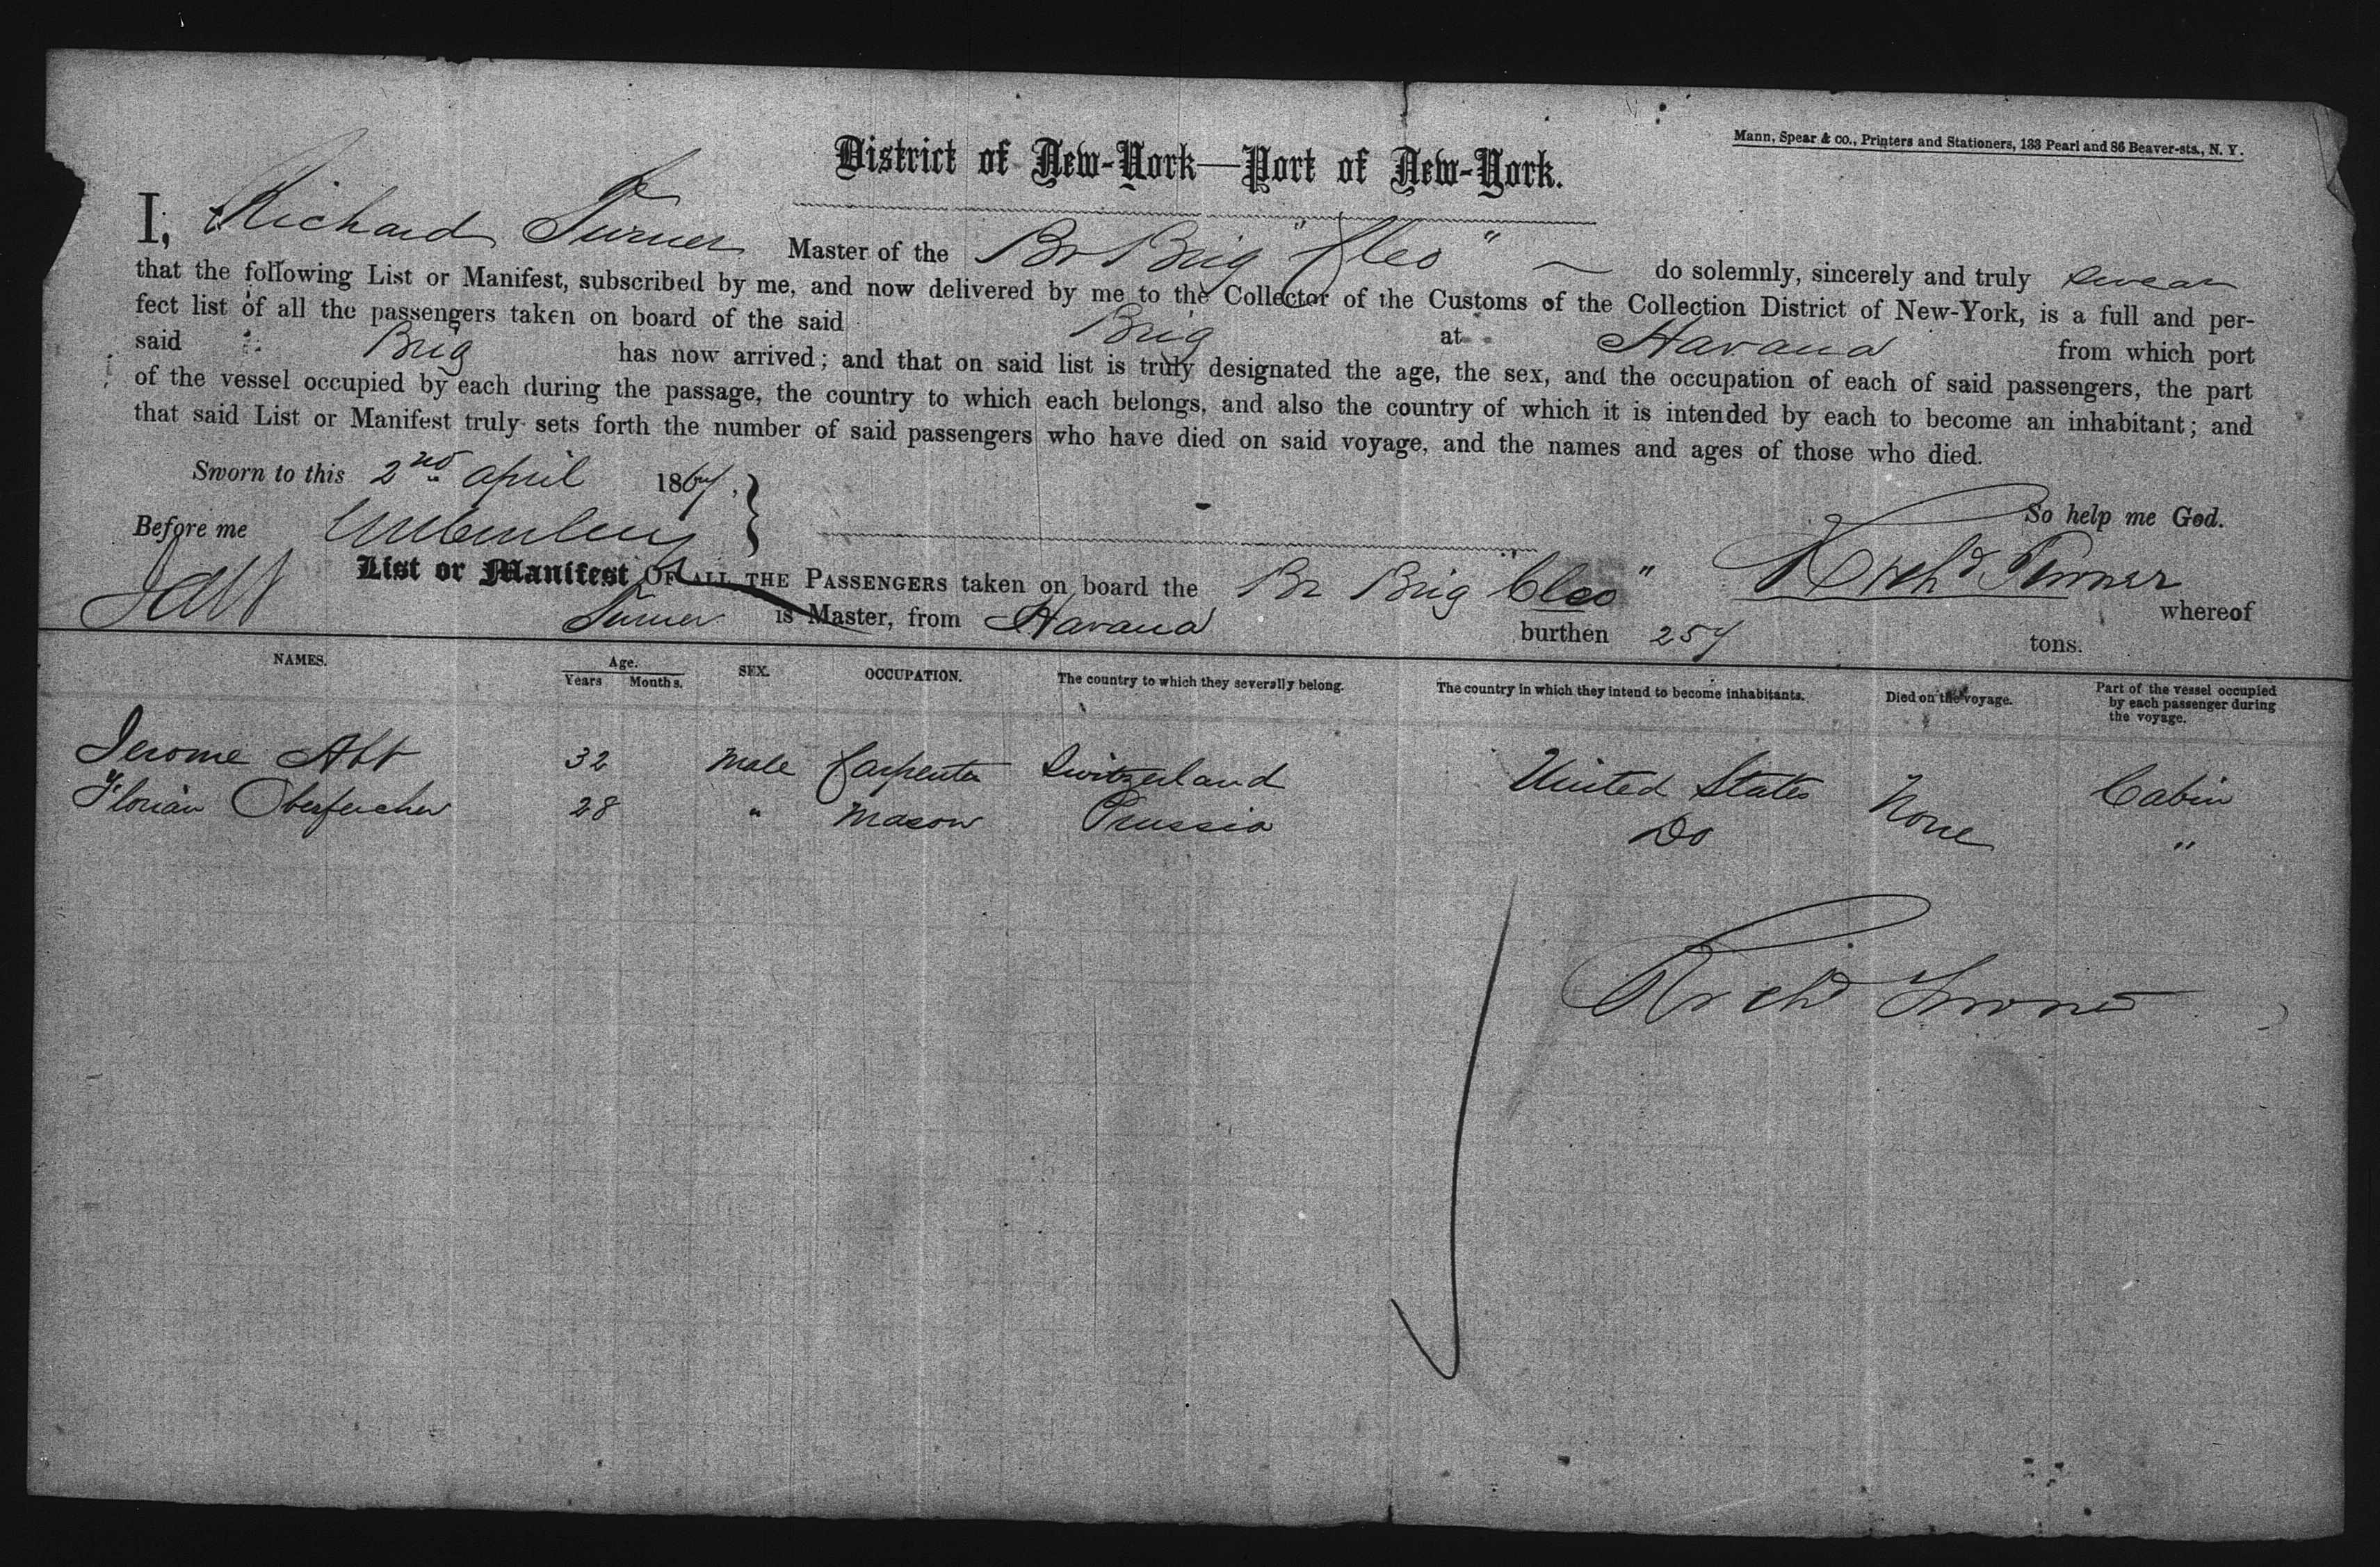 Mann, Spear & co., Printers and Stationers, 133 Pearl and 86 Beaver-sts., N. Y.
District of New-York—Port of New-York.
I, Richard Turner Master of the Br Brig "Cleo" do solemnly, sincerely and truly swear
that the following List or Manifest, subscribed by me, and now delivered by me to the Collector of the Customs of the Collection District of New-York, is a full and per-
fect list of all the passengers taken on board of the said Brig at Havana from which port
said Brig has now arrived; and that on said list is truly designated the age, the sex, and the occupation of each of said passengers, the part
of the vessel occupied by each during the passage, the country to which each belongs, and also the country of which it is intended by each to become an inhabitant; and
that said List or Manifest truly sets forth the number of said passengers who have died on said voyage, and the names and ages of those who died.
Sworn to this 2nd april 1867, So help me God.
Before me
Richd Turner
List or Manifest OF ALL THE PASSENGERS taken on board the Br Brig "Cleo" whereof
Turner is Master, from Havana burthen 257 tons.
NAMES. Age. Years Months. SEX. OCCUPATION. The country to which they severally belong. The country in which they intend to become inhabitants. Died on the voyage. Part of the vessel occupied by each passenger during the voyage.
Jerome Abt 32 Male Carpenter Switzerland United States None Cabin
Florian 28 " Mason Prussia Do "
Richd Turner